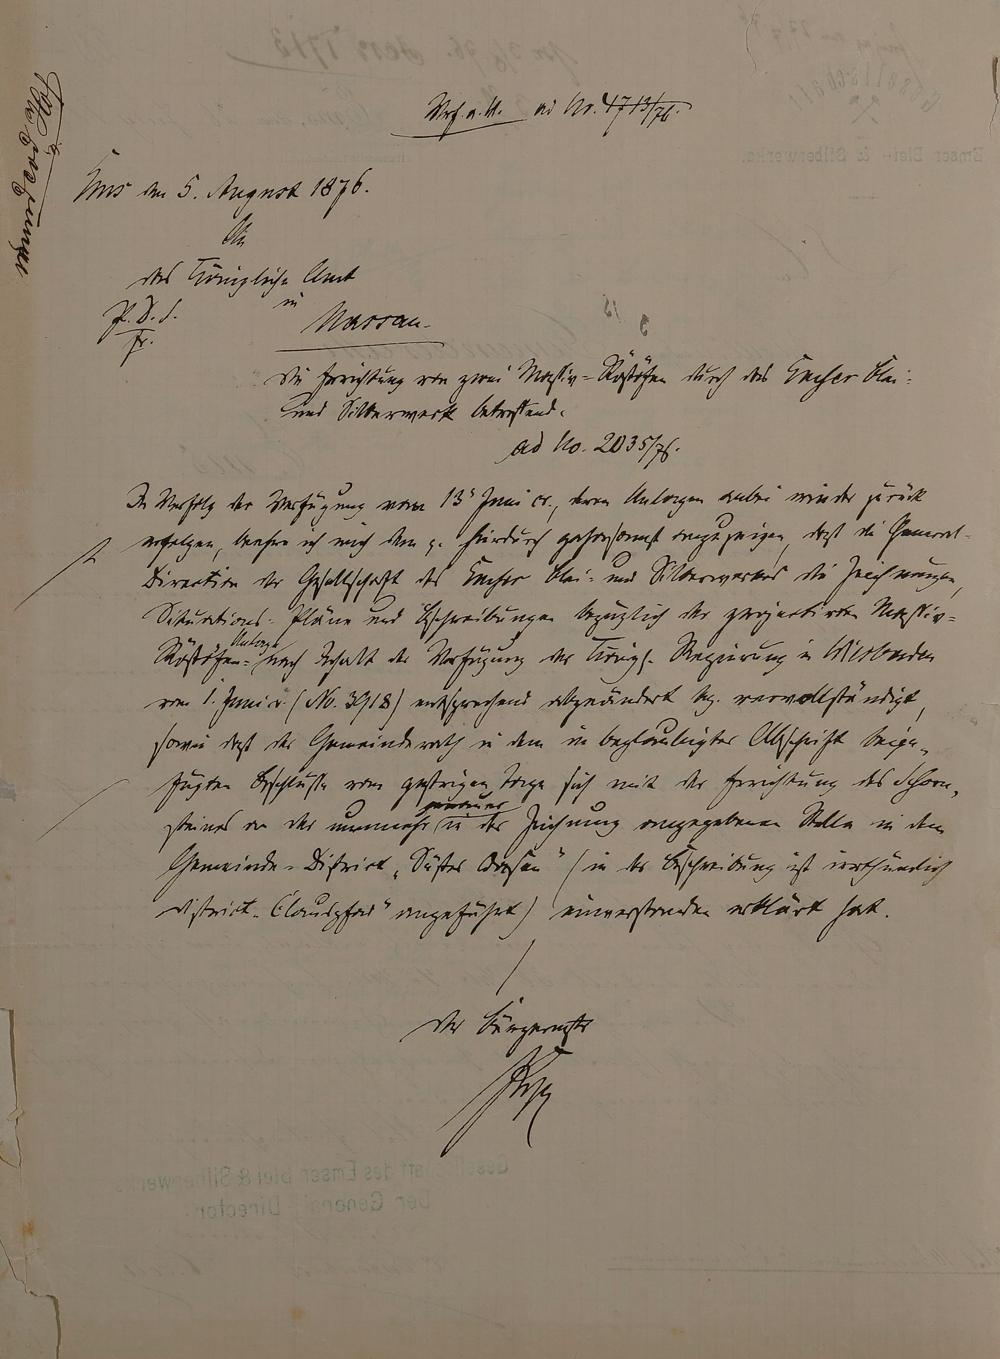 Urf. a. U. ad No. 4713/76.
Ems den 5. August 1876.
An
das Königliche Amt
in
Nassau.
Die Errichtung von zwei Massiv-Röstöfen durch das Emser Blei-
und Silberwerk betreffend.
ad No. 2035/76.
In Verfolg der Verfügung vom 13. Juni cr., deren Anlagen anbei wieder zurück
erfolgen, beehre ich mich dem p. hierdurch gehorsamst anzuzeigen, daß die General-
Direction der Gesellschaft des Emser Blei- und Silberwerkes die Zeichnungen,
Situations-Pläne und Beschreibungen bezüglich der projectirten Massiv-
Röstöfen-Anlage nach Inhalt der Verfügung der Königl. Regierung in Wiesbaden
vom 1. Juni cr. (No. 3918) entsprechend abgeändert bez. vervollständigt,
sowie daß der Gemeinderath in dem in beglaubigter Abschrift beige-
fügten Beschlusse vom gestrigen Tage sich mit der Errichtung des Schorn-
steines an der nunmehr in der Zeichnung angegebenen Stelle in dem
Gemeinde-District (in der Beschreibung ist irrthümlich
District „Clauspfad" angeführt) einverstanden erklärt hat.
Der Bürgermstr
Gesellschaft des Emser Blei & Silberwerks
Der General Director
Emser Blei- & Silberwerks.